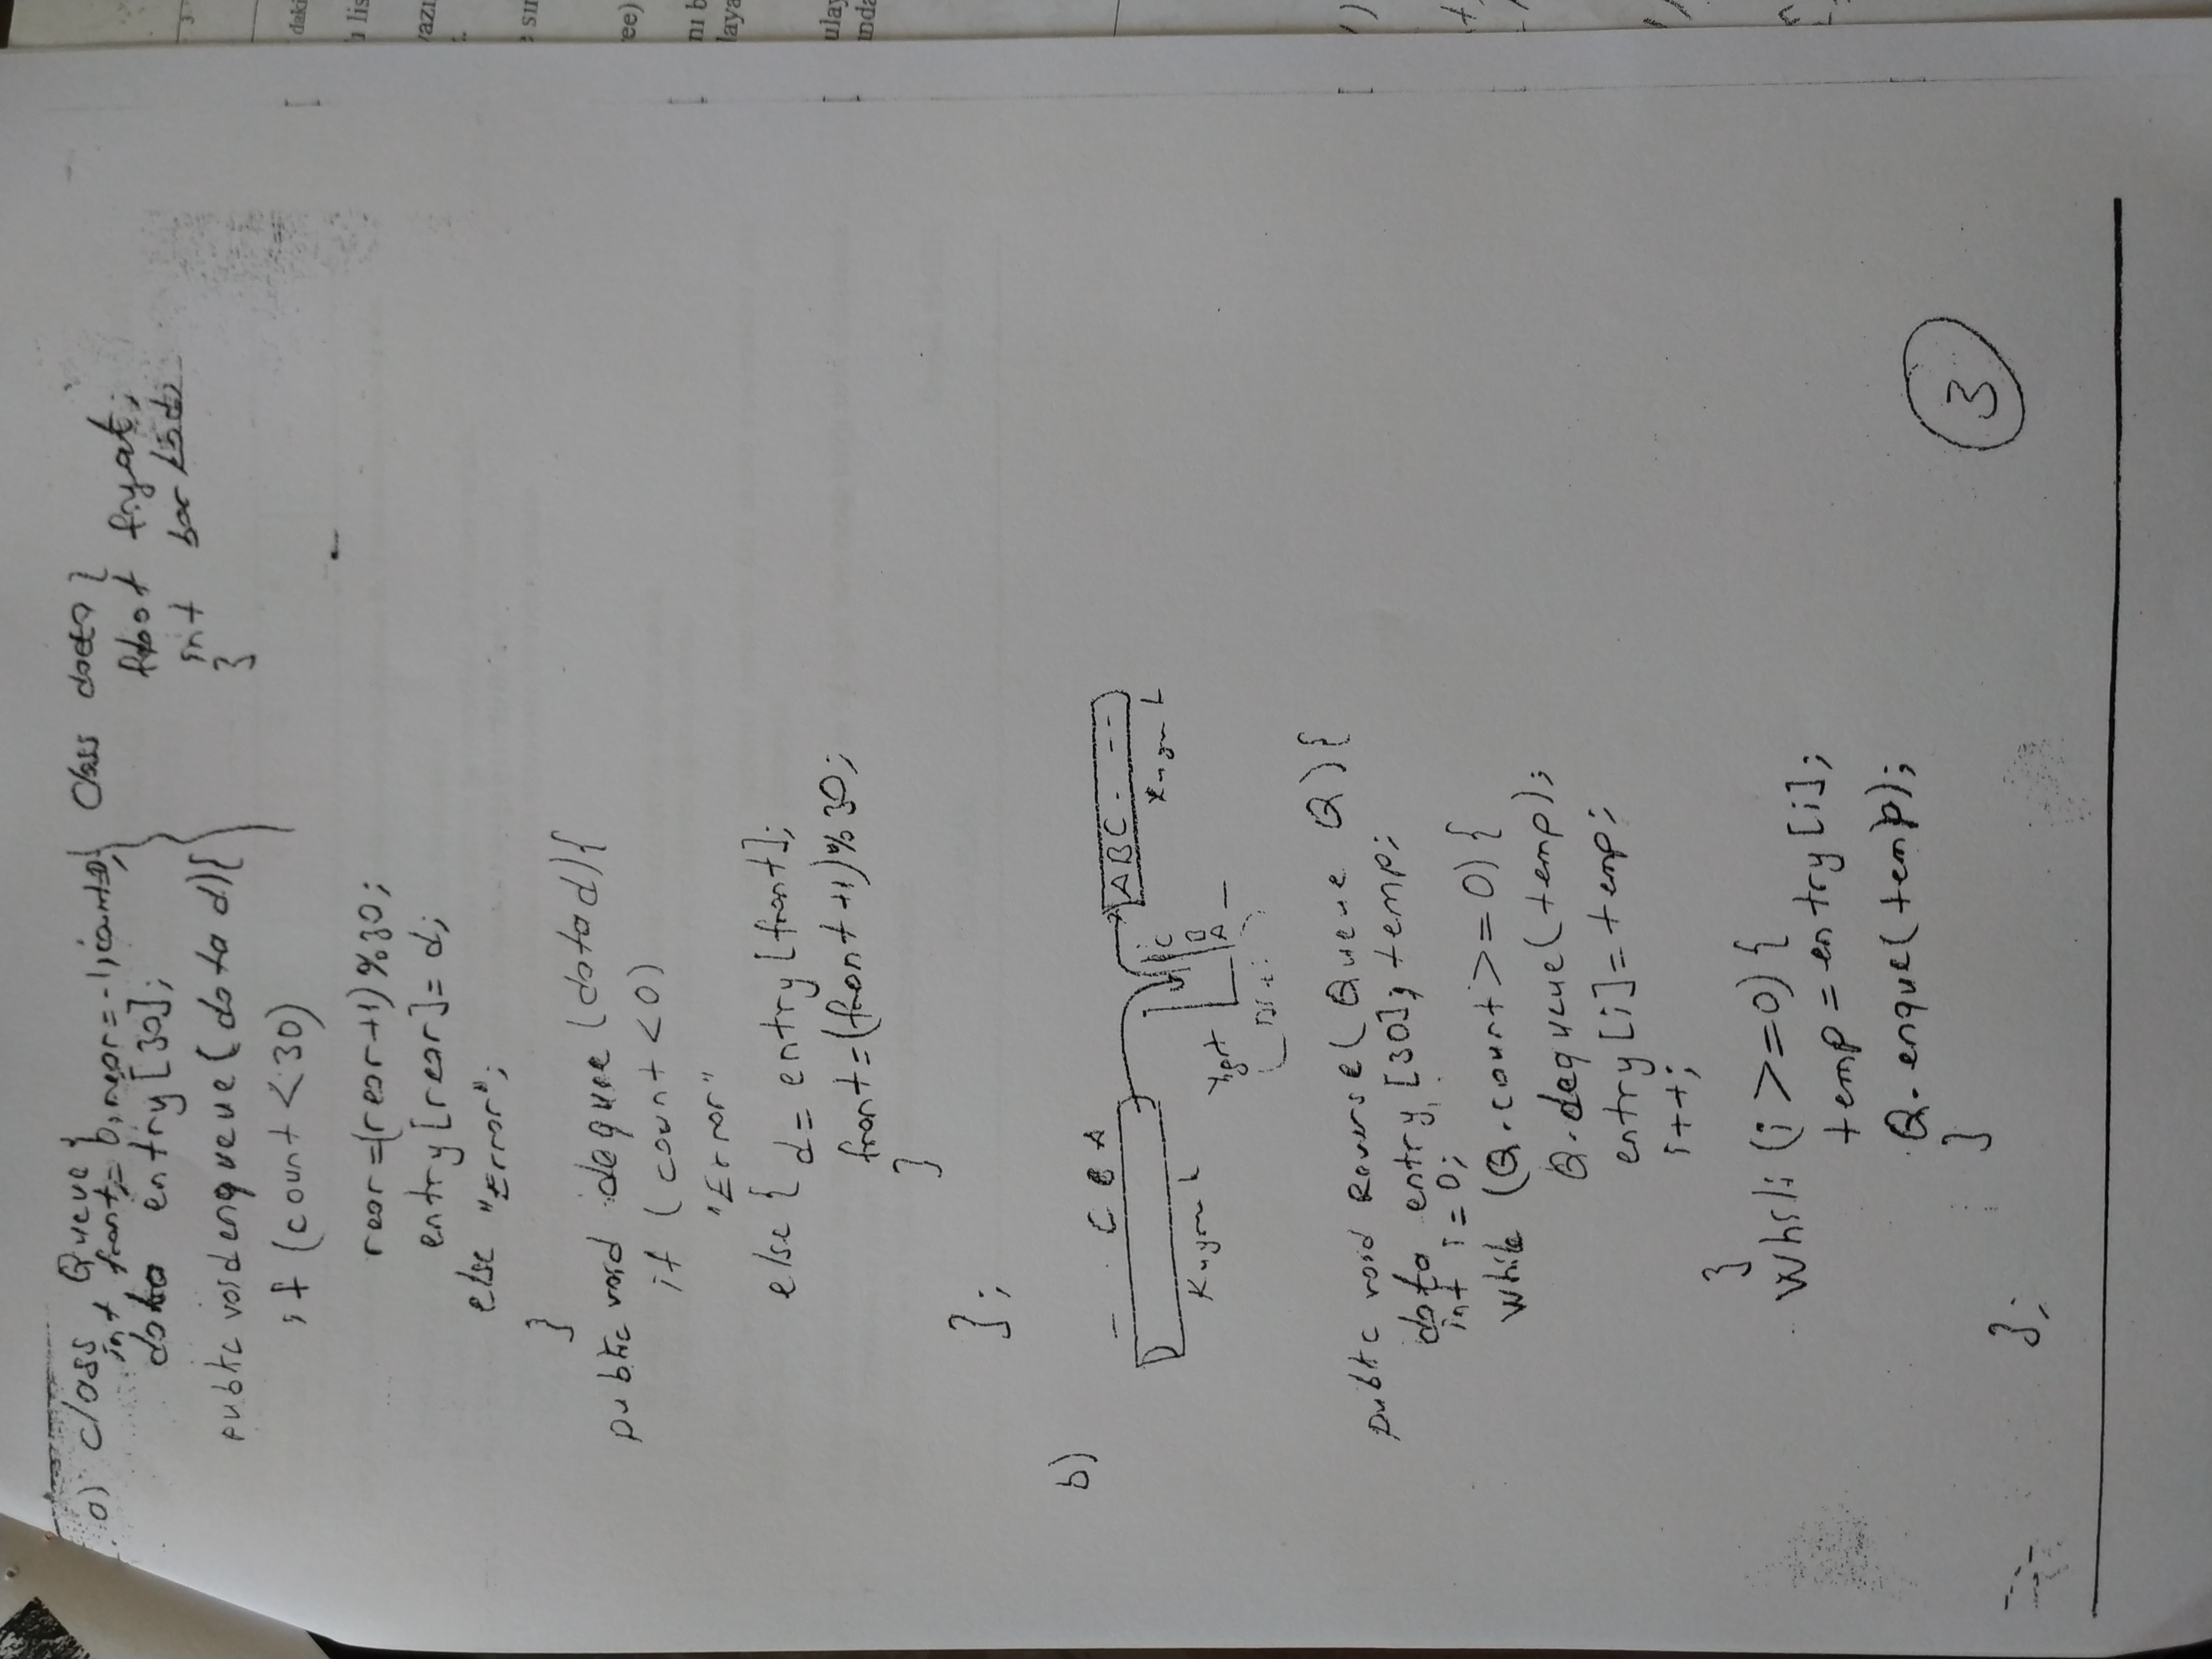 a) class Queue {
int front = 0, rear = -1, count=0;
data entry [30];
public void enqueue ( data d){
if (count < 30)
rear=(rear+1) % 30;
entry [rear] = d;
else "Error";
}
public void dequee (data d){
if ( count < 0)
"Error"
else { d= entry [front];
front=(front+1)% 30;
}
};
Class data {
float fiyat;
int barkod;
}
b)
C B A
Kuyruk
Yığıt
C
B
A
ABC - - -
Kuyruk
public void Reverse( Queue Q ) {
data entry [30], temp;
int i = 0;
while (Q.count >= 0) {
Q.dequeue(temp);
entry [i] = temp;
i++;
}
while (i >= 0) {
temp = entry [i];
Q.enque( temp);
}
};
3
3
daki
lis
yazı
sır
ree)
nı b
laya
ulay
ında